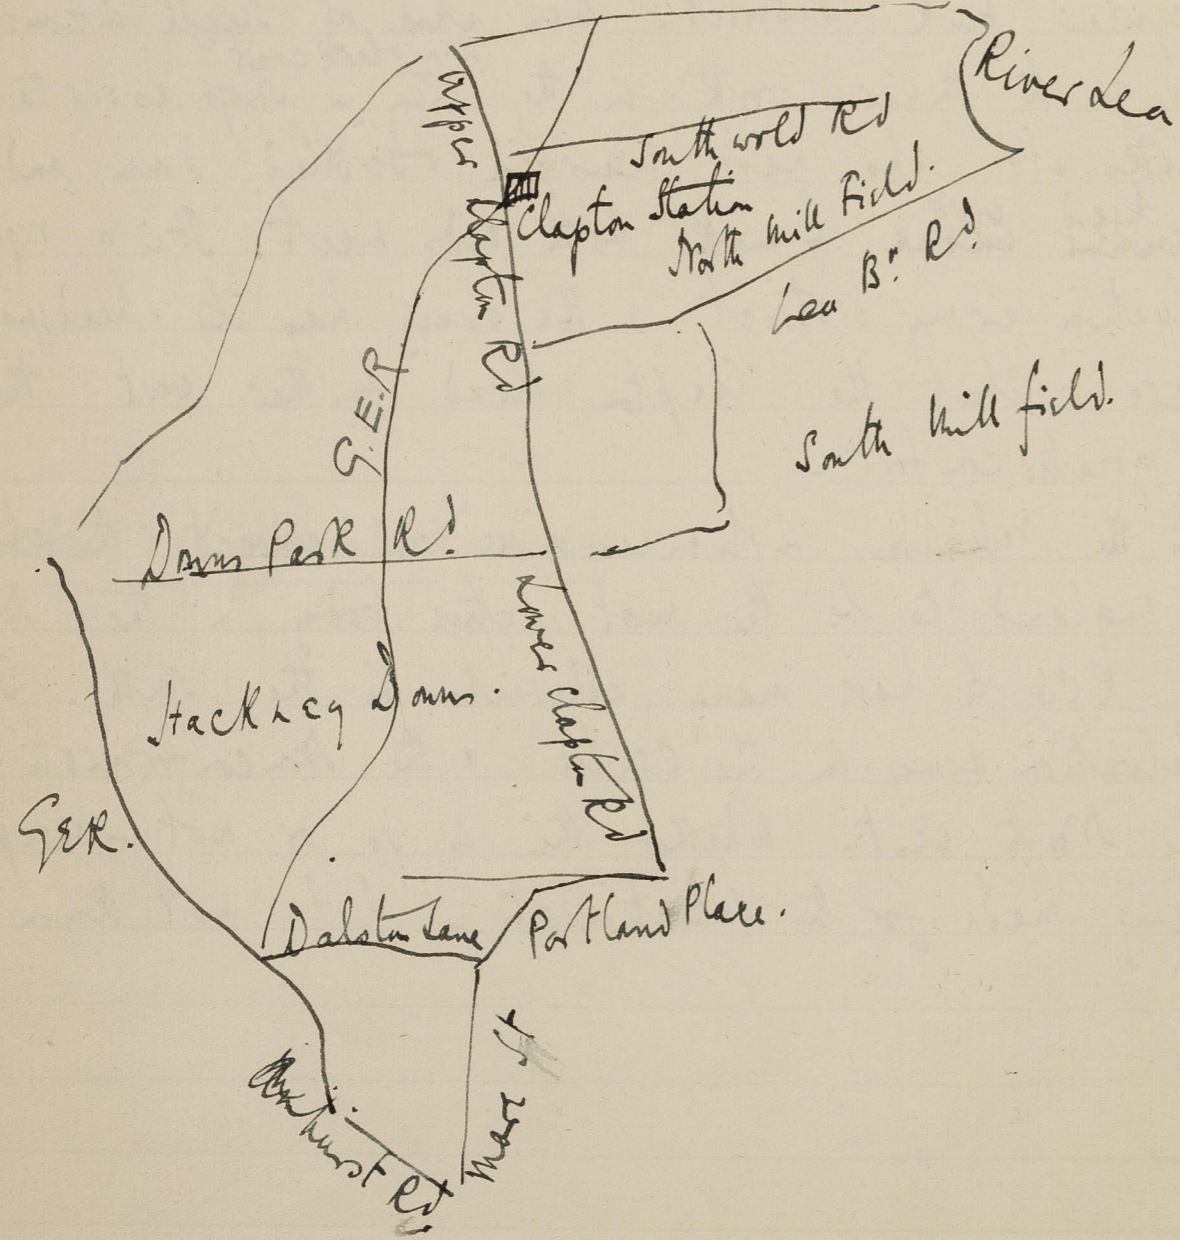 River Lea
Upper Clapton Rd
Southwold Rd
Clapton Station
North Mill Field.
Lea Br. Rd.
G.E.R
South Mill field.
Downs Park Rd.
Lower Clapton Rd
Hackney Downs.
GER.
Dalston Lane
Portland Place.
Mare St
Amhurst Rd